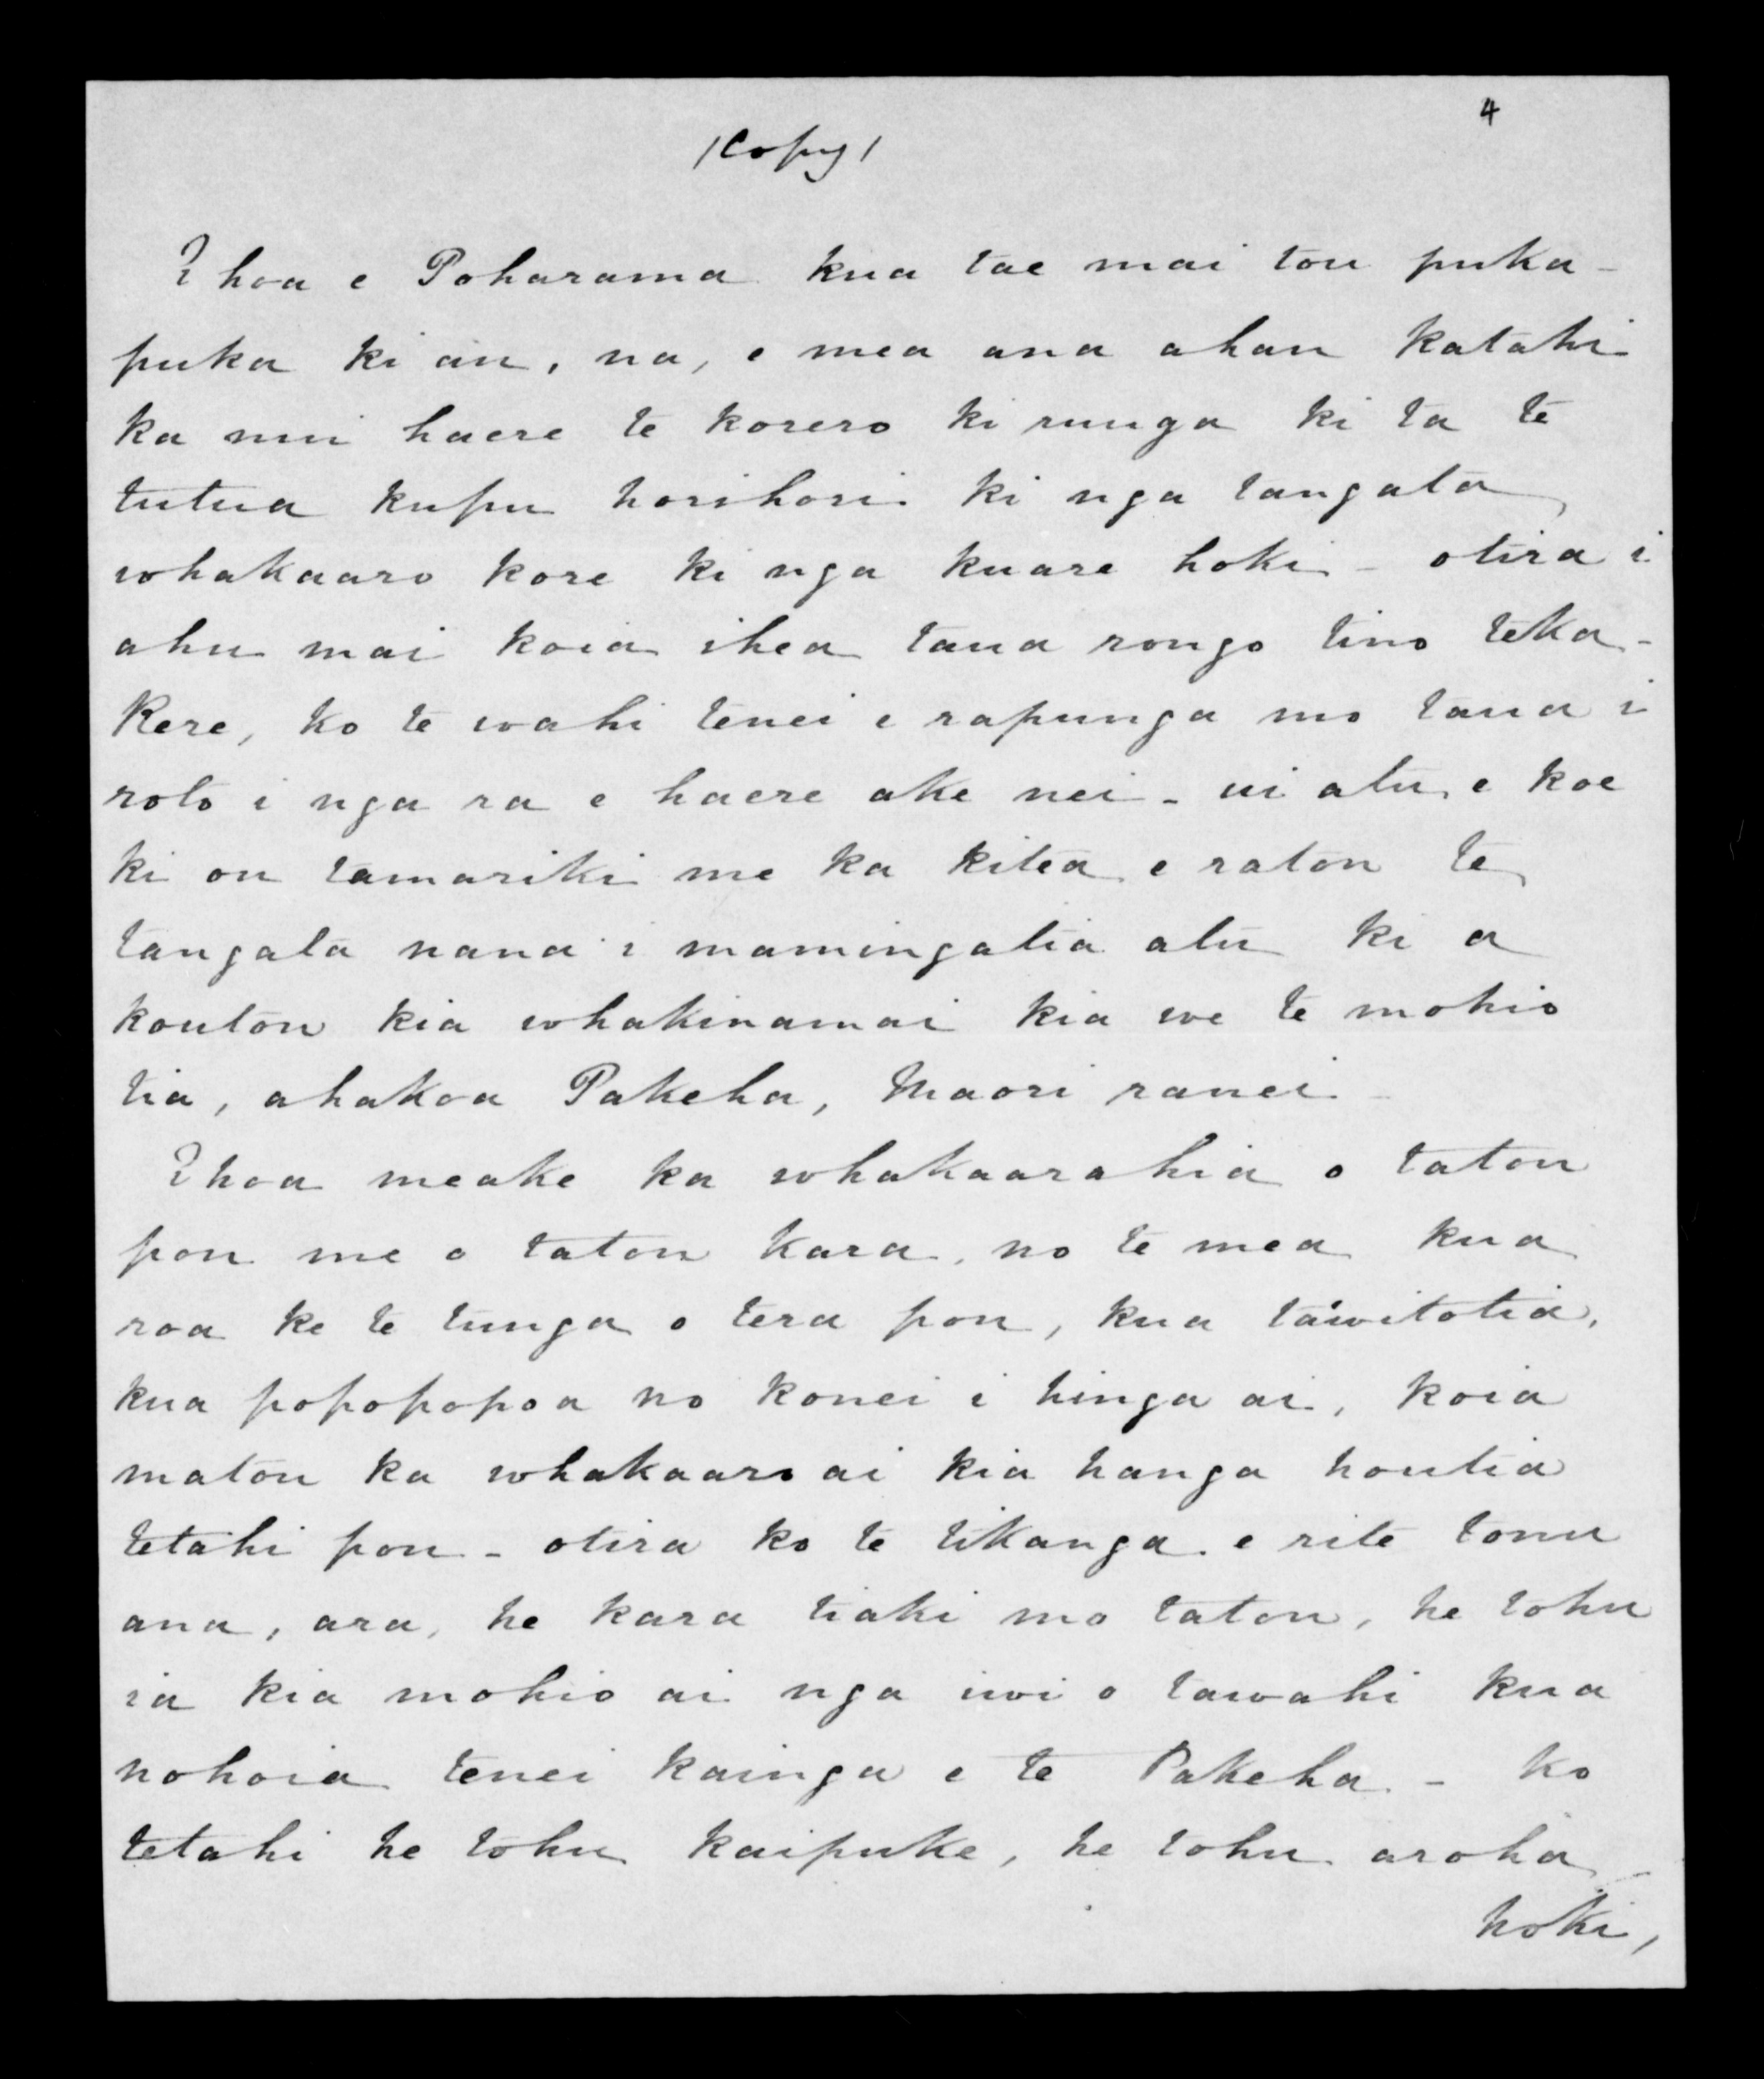 4
/Copy/
E hoa e Poharama kua tae mai tou puka-
puka ki au, na, e mea ana ahau katahi
ka nui haere te korero ki runga ki ta te
tutua kupu horihori ki nga tangata
whakaaro kore ki nga kuare hoki - otira i
ahu mai koia ihea taua rongo tino teka-
kere, ko te wahi tenei e rapunga mo taua i
roto i nga ra e haere ake nei - ui atu e koe
ki ou tamariki me ka kitea e ratou te
tangata nana i mamingatia atu ki a
koutou kia whakinamai kia we te mohio
tia, ahakoa Pakeha, Maori ranei -
E hoa meake ka whakaarahia o tatou
pou me o tatou Kara, no te mea kua
roa ke te tunga o tera pou, kua tawitotia,
kua popopopoa no konei i hinga ai, koia
matou ka whakaaro ai kia hanga houtia
tetahi pou - otira ko te tikanga e rite tonu
ana, ara, he kara tiaki mo tatou, he tohu
ia kia mohio ai nga iwi o tawahi kua
nohoia tenei kainga e te Pakeha - ko
tetahi he tohu kaipuke, he tohu aroha
hoki,